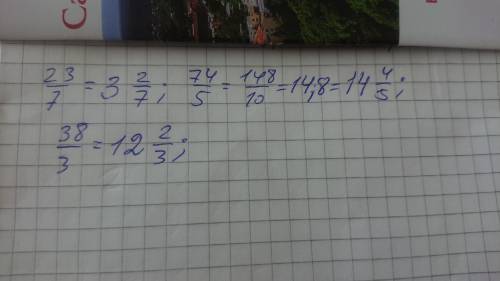 Са
23/7 = 3 2/7; 74/5 = 148/10 = 14,8 = 14 4/5;
38/3 = 12 2/3;